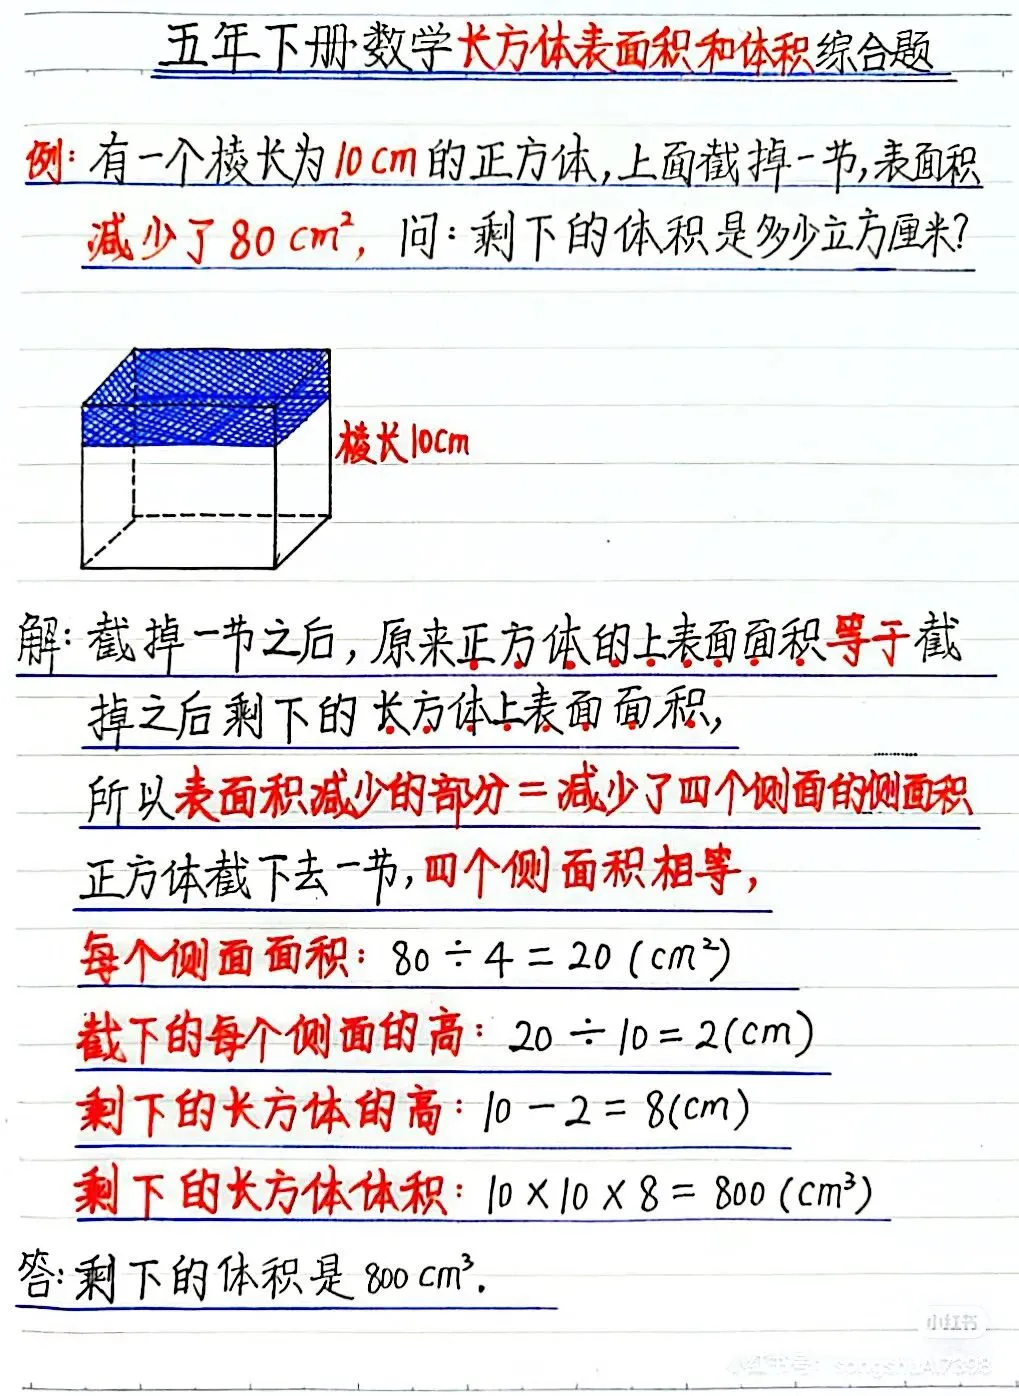 五年下册数学长方体表面积和体积综合题
例:有一个棱长为10cm的正方体,上面截掉一节,表面积
减少了80cm²,问:剩下的体积是多少立方厘米?
棱长10cm
解:截掉一节之后,原来正方体的上表面面积等于截
掉之后剩下的长方体上表面面积,
所以表面积减少的部分=减少了四个侧面的侧面积
正方体截下去一节,四个侧面积相等,
每个侧面面积:80÷4=20(cm²)
截下的每个侧面的高:20÷10=2(cm)
剩下的长方体的高:10-2=8(cm)
剩下的长方体体积:10×10×8=800(cm³)
答:剩下的体积是800cm³.
小红书
小红书号: